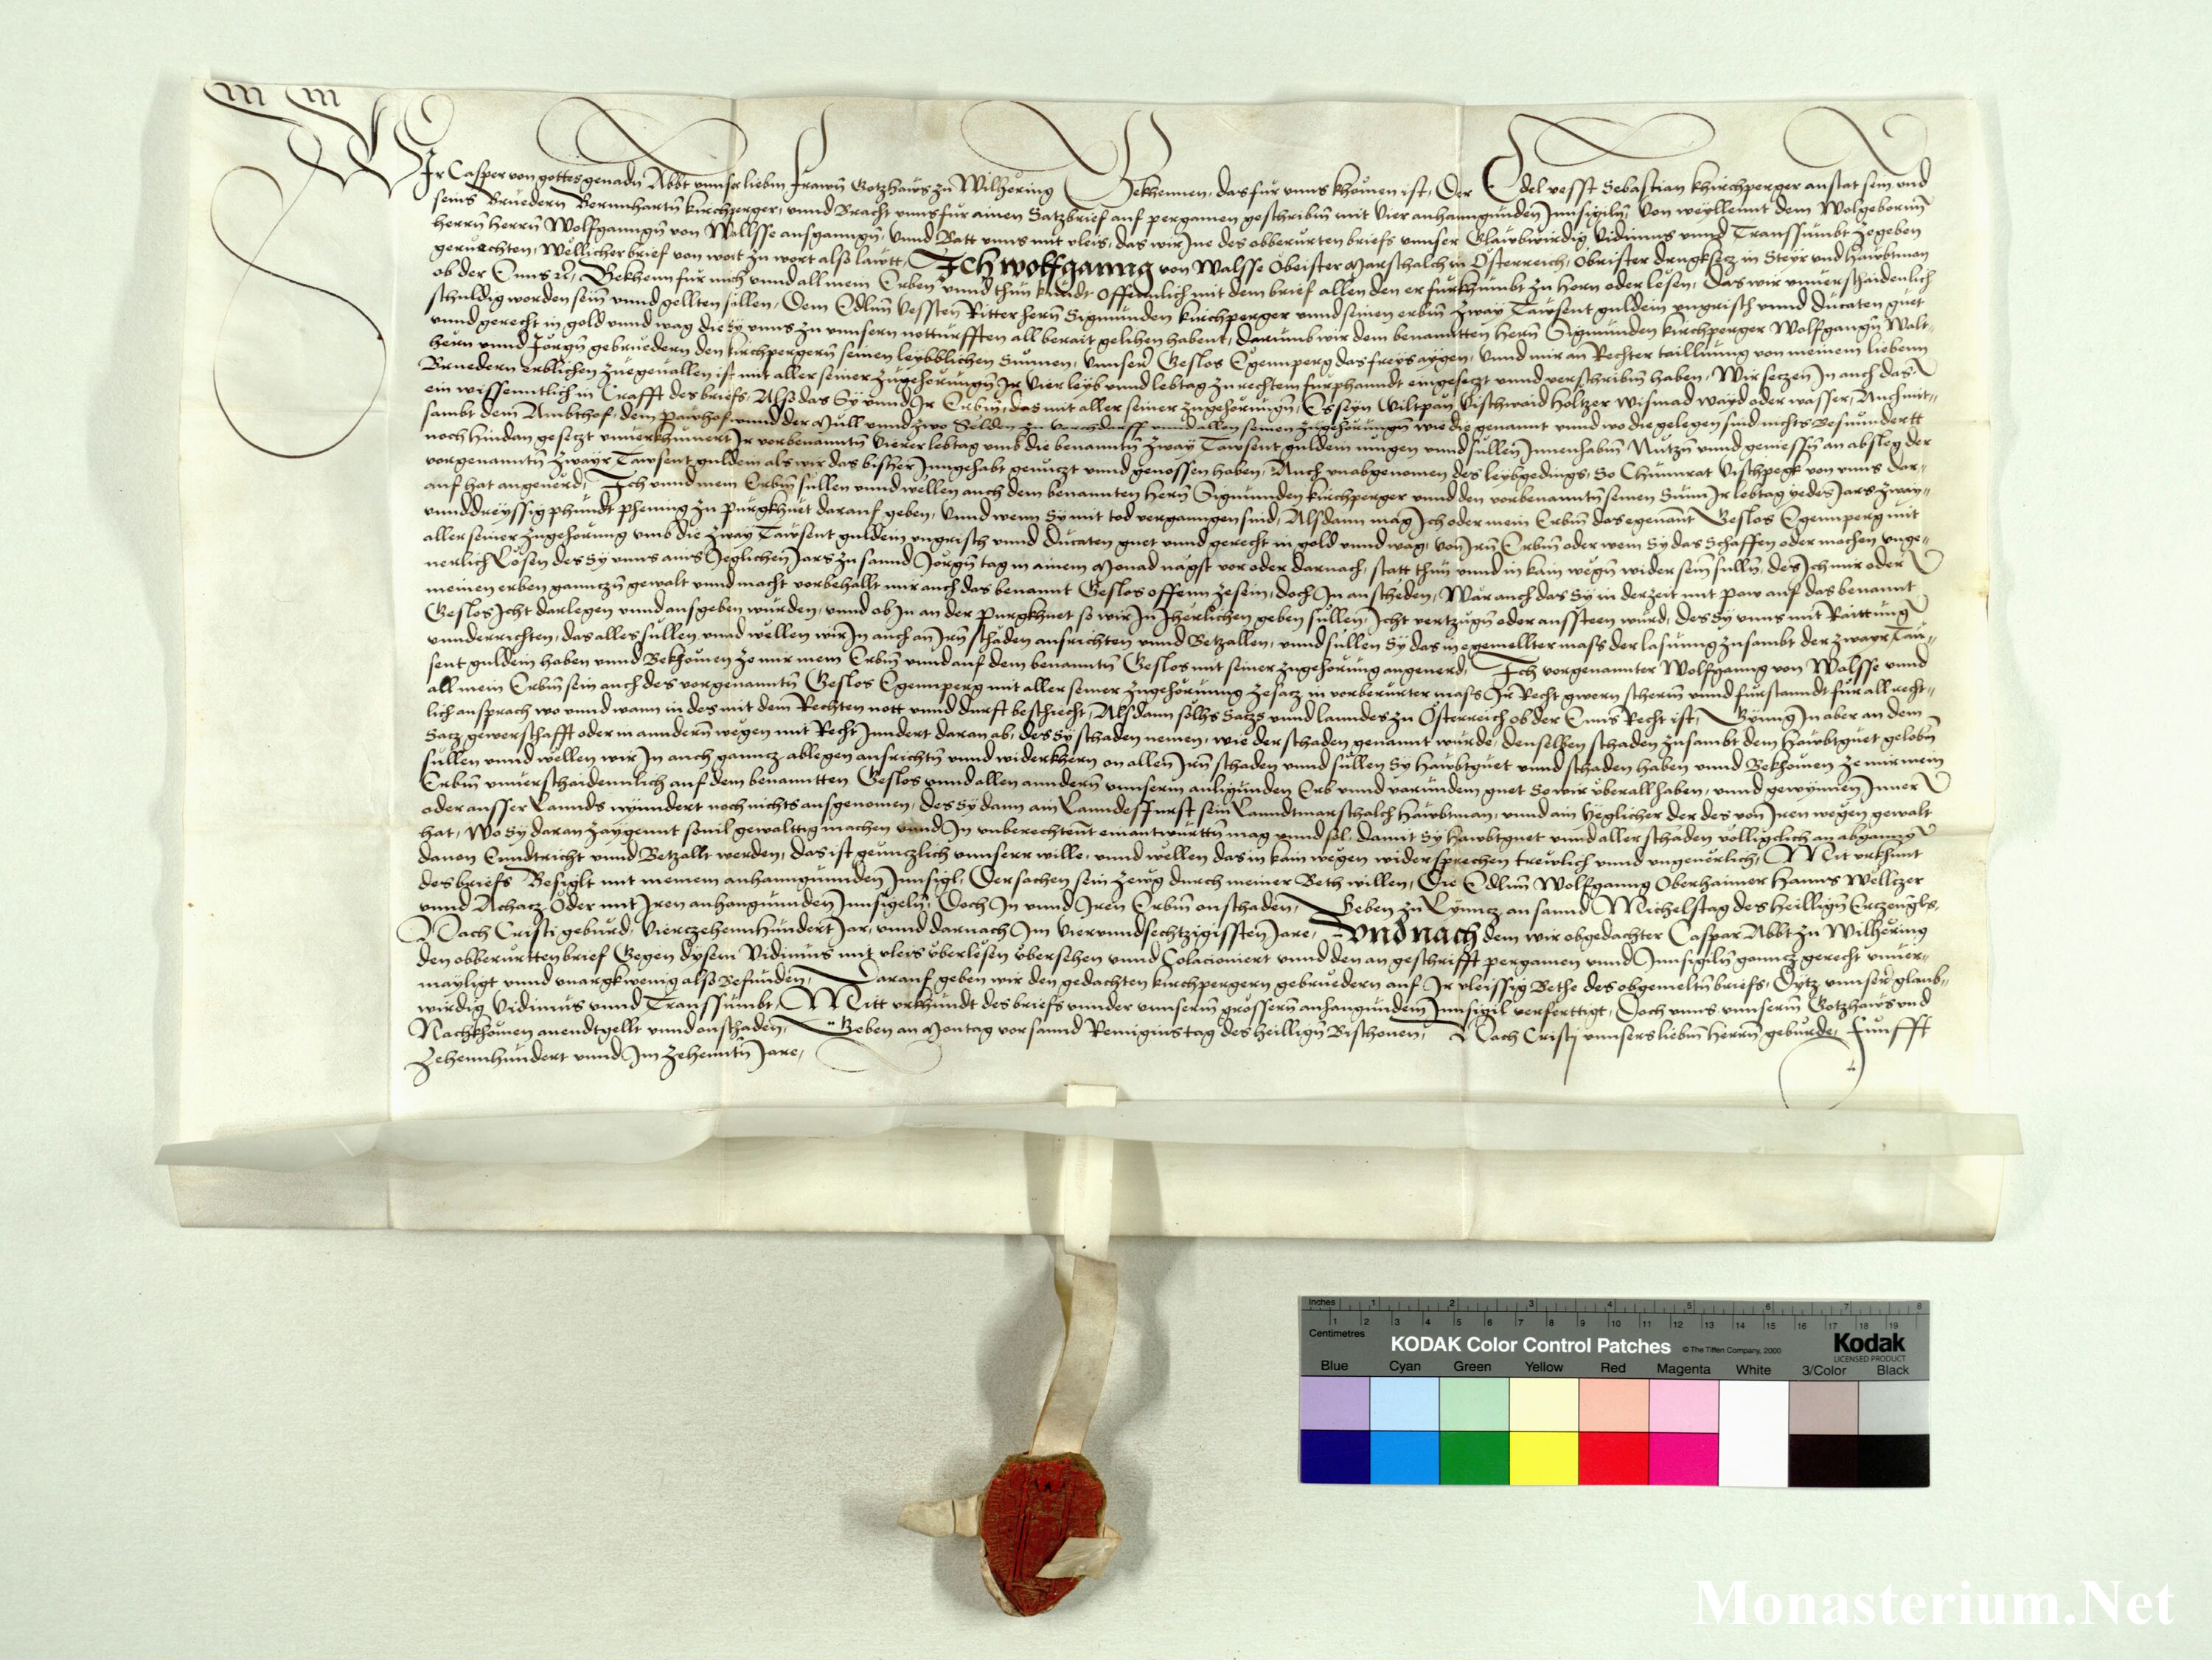 Wir Casper von gottes genadn Abbt vnnser lieben frawn Gotzhaws zu Wilhering Bekhennen, das fur vnns khomen ist, Der Edel vesst Sebastian khirchperger anstat sein vnd
seins Bruedern Bernnhartn kirchperger, vnnd Bracht vnns fur ainen Satzbrief auf pergamen geschribn mit vier anhanngunden Innsigiln, von weyllennt dem Wolgebornn
herrn herrn Wolfganngn von Wallsse ausganngn, vnnd Batt vnns mit vleis, das wir Ine des obberurten briefs vnnser Glawbwirdig Vidimus vnnd Transsumbt zegeben
geruechten, Wellicher brief von wort zu wort also lawtt, Ich wolfganng von Walsse Obrister Marschalch in Osterreich, Obrister drugksecz in Steyr vnd Hawbtman
ob der Enns &c, Bekhenn fur mich vnnd all mein Erben vnnd thun kundt offennlich mit dem brief allen den er furkhumbt zu horn oder lesen, Das wir vnuerschaidenlich
schuldig worden sein vnnd gellten sullen, Dem Edlnn Vessten Ritter hern Sigmunden kirchperger vnnd seinen erbn zway Tawsent guldein vngrisch vnnd ducaten guet
vnnd gerecht in gold vnnd wag die sy vnns zu vnnsern notturfften all berait gelihen habent, darumb wir dem benanntten hern Sigmunden kirchperger Wolfgangn Walt-
hern vnnd Jorgn gebruedern den kirchpergern seinen leybblichen Sunnen, vnnser Geslos Egennperg das freys aygen, vnnd mir an Rechter taillung von meinem liebenn
Bruedern erblichen zuegeuallen ist mit aller seiner zugehorungn Ir vier leyb vnnd lebtag zu rechtem furphanndt eingesetzt vnnd verschribn haben, Wir seczen In auch das
ein wissenntlich in Crafft des briefs, Also das Sy vnnd Ir Erbn, das mit aller seiner zugehorungn, Es seyn Wiltpan Vischwaid Holtzer Wismad wayd oder wasser, Auch mit-
sambt dem Ambthof, dem pawhof vnnd der Mull vnnd zwo Selden zu vnnd allen seinen zugehorungn wie die genannt vnnd wo die gelegen sind nichts Besunndertt
noch hindan gesetzt vnuerkhunert Ir vorbenanntn vierer lebtag vmb die benanntn zway Tawsent guldein mugen vnnd sullen Innenhabn Nutzn vnnd geniessn an absleg der
vorgenanntn zwayr Tawsent guldein als wir das bisher Inngehabt genuczt vnnd genossen haben, Auch vnabgenomen des leybgedings, So Chunrat Vischpegk von vnns dar-
auf hat angeuerd, Ich vnnd mein Erbn sullen vnnd wellen auch dem benannten hern Sigmunden kirchperger vnnd den vorbenanntn seinen Sunn Ir lebtag yedes Jars zway-
vnnd dreyssig phundt phening zu purgkhuet darauf geben, Vnnd wenn Sy mit tod vergangen sind, Alsdann mag Ich oder mein Erbn das egenant Geslos Egennperg mit
aller seiner zugehorung vmb die zway Tawsent guldein vngrisch vnnd Ducaten guet vnnd gerecht in gold vnnd wag, von Irn Erbn oder wem Sy das schaffen oder machen vnge-
uerlich Losen des Sy vnns ains Yeglichen Jars zu sannd Jorgn tag in ainem Monad nagst vor oder darnach, statt thun vnnd in kain wegn wider sein sulln, des Ich mir oder
meinen erben gannczn gewalt vnnd macht vorbehallt mir auch das benannt Geslos offenn zesein, doch In an scheden, War auch das Sy in der zeit mit paw auf das benannt
Geslos Icht darlegen vnnd ausgeben wurden, vnnd ob In an der purgkhuet so wir In Iherlichen geben sullen, Icht vertzugn oder aussteen wurd, des Sy vnns mit Raittung
vnnderrichten, das alles sullen vnnd wellen wir In auch an Irn schaden ausrichten vnnd Betzallen, vnnd sullen Sy das in egemellter mass der lasung zusambt der zwayr Tau-
sent guldein haben vnnd Bekhomen ze mir mein Erbn vnnd auf dem benanntn Geslos mit seiner zugehorung angeuerd, Ich vorgenannter Wolfganng von Walsse vnnd
all mein Erbn sein auch des vorgenanntn Geslos Egennperg mit aller seiner zugehorunng zesacz in vorberurter mass Ir Recht gwern scherm vnnd furstanndt fur all recht-
lich ansprach wo vnnd wann in des mit dem Rechten nott vnnd durft beschiecht, Als dann solhs Saczs vnnd lanndes zu Osterreich ob der Enns Recht ist, Gienng In aber an dem
Sacz gewerschafft oder in anndern wegen mit Recht Inndert daran ab, des Sy schaden nemen, wie der schaden genannt wurde, denselben schaden zusambt dem Hawbtguet gelobn
sullen vnnd wellen wir In auch ganncz ablegen ausrichtn vnnd widerkhern on allen Irn schaden vnnd sullen Sy Hawbtguet vnnd schaden haben vnnd Bekhomen ze mir mein
Erbn vnuerschaidennlich auf dem benanntten Geslos vnnd allen anndern vnnserm anligunden Erb vnnd varundem guet So wir vberall haben, vnnd gewynnen Inner
oder ausser Lannds nynndert noch nichts ausgenomen, des Sy dann ain Lanndes Furst sein Lanndtmarschalch Hawbtman, vnnd ain Yeglicher der des von Iren wegen gewalt
hat, Wo Sy daran zaygennt souil gewalttig machen vnnd In vnberechtennt einantwurttn mag vnnd sol, damit Sy Hawbtguet vnnd aller schaden volligclich an abganng
dauon Enndtricht vnnd Betzallt werden, das ist genntzlich vnnserr wille, vnnd wellen das in kain wegen widersprechen trewlich vnnd vngeuerlich, Mit vrkhunt
des briefs Besiglt mit meinem anhanngunden Innsigl, Der sachen sein zewg durch meiner Beth willen, Die Edlnn Wolfganng Oberhaimer Hanns Welltzer
vnnd Achacz Oder mit Iren anhangunnden Innsigeln, Doch In vnnd Iren Erbn on schaden, Geben zu Lynncz an sannd Michelstag des heilligen Erczenngls,
Nach Cristi geburd, Vierczehenhundert Jar, vnnd darnach Im Vierundsechtzigissten Jare, Vnd nach dem wir obgedachter Caspar Abbt zu Wilhering
den obberurtten brief Gegen disem Vidimus mit vleis vberlesen vbersehen vnnd Colacioniert vnnd den an geschrifft pergamen vnnd Innsigiln ganncz gerecht vnuer-
mayligt vnnd vnargkwenig also Befunden, Darauf geben wir den gedachten kirchpergern gebruedern auf Ir vleissig Bethe des obgemeltn briefs, Ditz vnnser glaub-
wirdig Vidimus vnnd Transsumbt, Mitt vrkhundt des briefs vnnder vnnserm grossern anhangundem Innsigil verferttigt, Doch vnns vnnserm Gotzhaws vnd
Nachkhomen anendtgellt vnnd on schaden, Geben an Montag vor sannd Remigius tag des heilligen Bischouen, Nach Cristj vnnsers liebn Herrn geburde, Funfft
zehennhundert vnnd Im zehenntn Jare,
Inches 1 2 3 4 5 6 7 8
Centimetres 1 2 3 4 5 6 7 8 9 10 11 12 13 14 15 16 17 18 19
KODAK Color Control Patches © The Tiffen Company, 2000 Kodak
LICENSED PRODUCT
Blue Cyan Green Yellow Red Magenta White 3/Color Black
Monasterium.Net